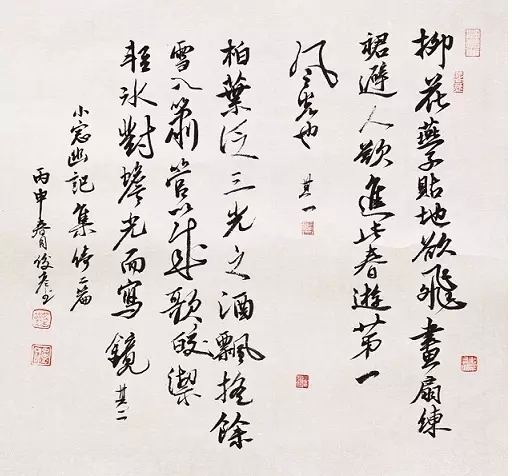 柳花燕子貼地欲飛畫扇練
裙避人欲進此春遊第一
风光也 其一
柏葉泛三光之酒飄搖餘
雪入箫管以成歌皎潔
輕冰對蟾光而寫鏡 其二
小窓幽記集倩二篇
丙申春月俊彥